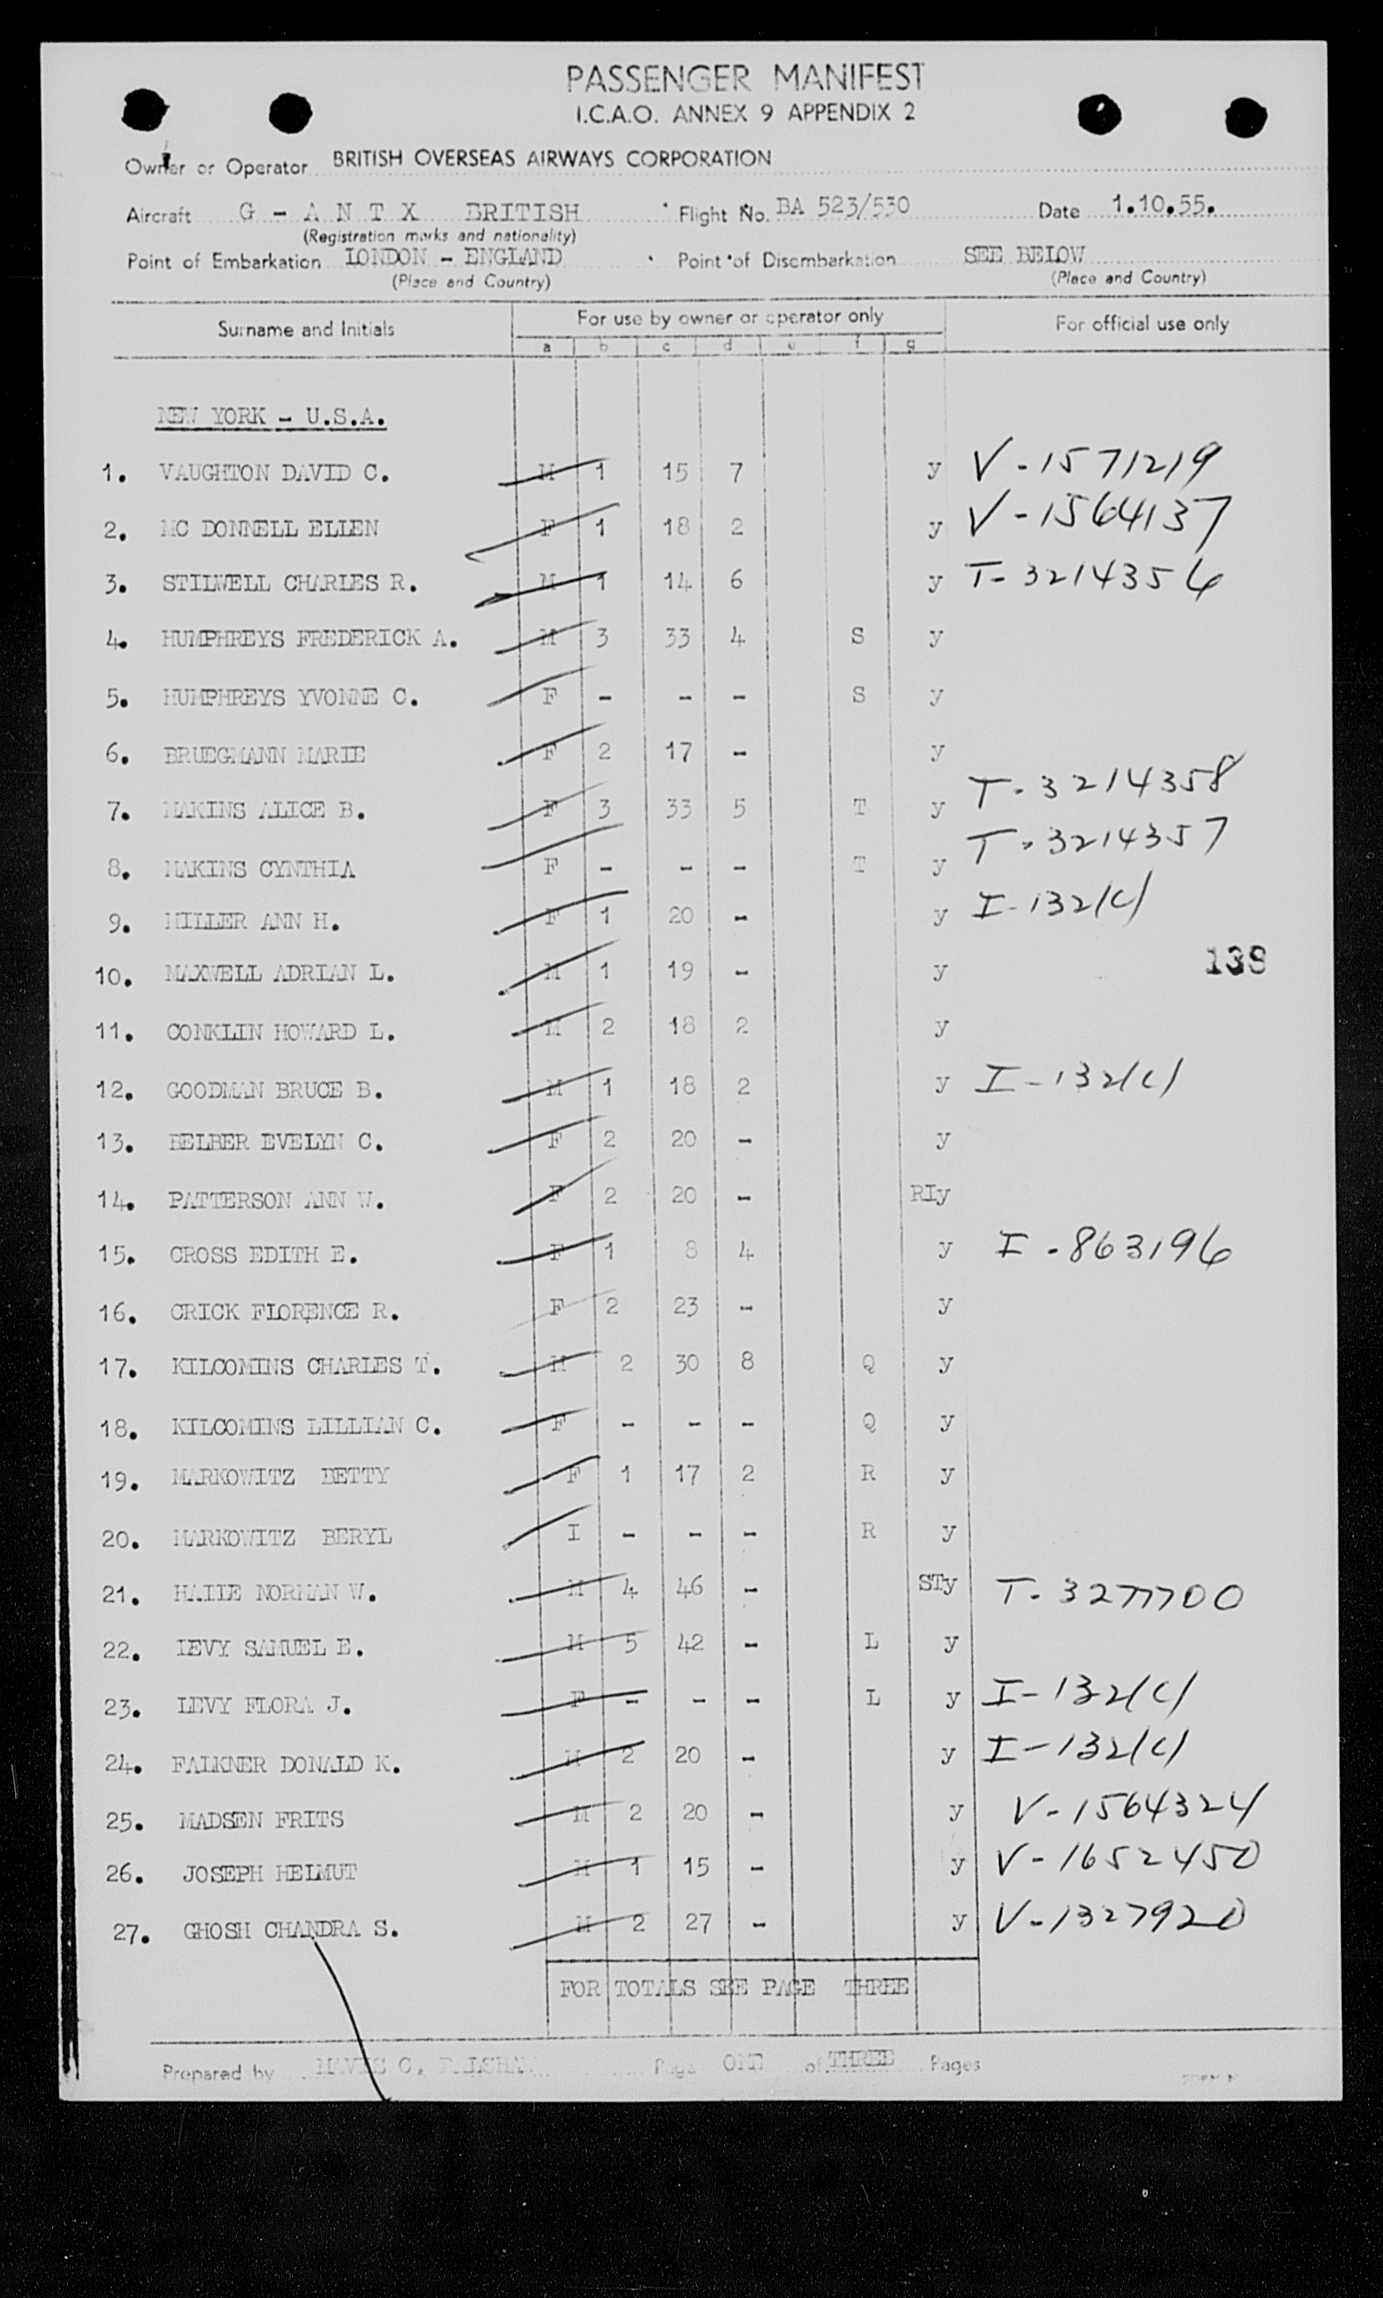 PASSENGER MANIFEST
I.C.A.O. ANNEX 9 APPENDIX 2
Owner or Operator BRITISH OVERSEAS AIRWAYS CORPORATION
Aircraft G - A N T X BRITISH Flight No. BA 523/530 Date 1.10.55.
(Registration marks and nationality)
Point of Embarkation LONDON - ENGLAND Point of Disembarkation SEE BELOW
(Place and Country) (Place and Country)
Surname and Initials For use by owner or operator only For official use only
a b c d e f g
NEW YORK - U.S.A.
1. VAUGHTON DAVID C. M 1 15 7 y V-1571219
2. MC DONNELL ELLEN F 1 18 2 y V-1564137
3. STILWELL CHARLES R. M 1 14 6 y T-3214356
4. HUMPHREYS FREDERICK A. M 3 33 4 S y
5. HUMPHREYS YVONNE C. F - - - S y
6. BRUEGMANN MARIE F 2 17 - y
7. MAKINS ALICE B. F 3 33 5 T y T-3214358
8. MAKINS CYNTHIA F - - - T y T-3214357
9. MILLER ANN H. F 1 20 - y I-132(c)
10. MAXWELL ADRIAN L. M 1 19 - y 138
11. CONKLIN HOWARD L. M 2 18 2 y
12. GOODMAN BRUCE B. M 1 18 2 y I-132(c)
13. BELBER EVELYN C. F 2 20 - y
14. PATTERSON ANN W. F 2 20 - RIy
15. CROSS EDITH E. F 1 8 4 y I-863196
16. CRICK FLORENCE R. F 2 23 - y
17. KILCOMINS CHARLES T. M 2 30 8 Q y
18. KILCOMINS LILLIAN C. F - - - Q y
19. MARKOWITZ BETTY F 1 17 2 R y
20. MARKOWITZ BERYL I - - - R y
21. HAILE NORMAN W. M 4 46 - STy T-3277700
22. LEVY SAMUEL E. M 5 42 - L y
23. LEVY FLORA J. F - - - L y I-132(c)
24. FALKNER DONALD K. M 2 20 - y I-132(c)
25. MADSEN FRITS M 2 20 - y V-1564324
26. JOSEPH HELMUT M 1 15 - y V-1652450
27. GHOSH CHANDRA S. M 2 27 - y V-1327920
FOR TOTALS SEE PAGE THREE
Prepared by MAVIS C. Page ONE of THREE Pages